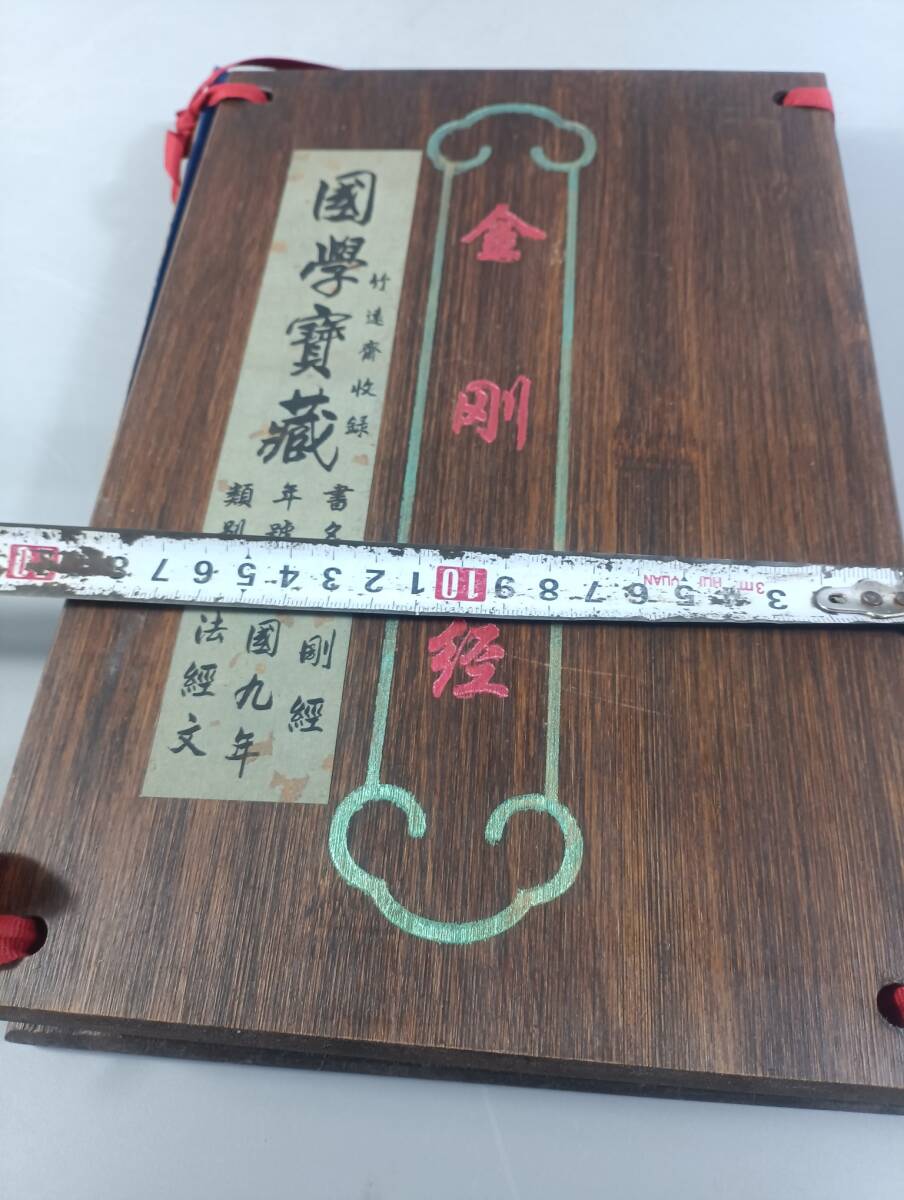 金剛经
國學寶藏
竹遠齋收録
書名
剛經
年號
國九年
類別
法經文
3m RUI YUAN
3 4 5 6 7 8 9 10 1 2 3 4 5 6 7 8